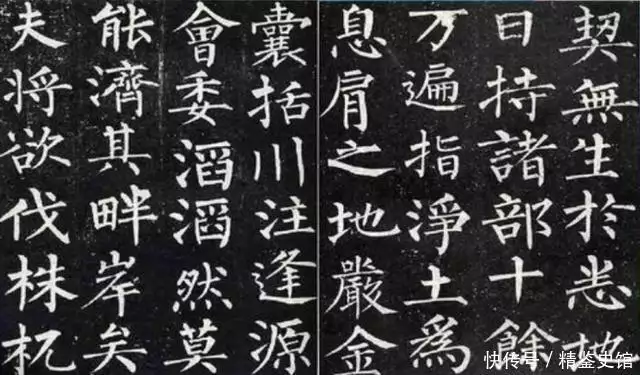 契無生於悉地
日持諸部十餘
万遍指淨土為
息肩之地嚴金
囊括川注逢源
會委滔滔然莫
能濟其畔岸矣
夫將欲伐株杌
快传号／精鉴史馆